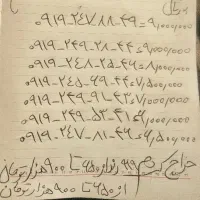 ۰۹۱۹-۲۴۷-۸۸-۴۹=۹,۰۰۰,۰۰۰
۰۹۱۹-۲۴۹-۲۸-۴۴=۹,۰۰۰,۰۰۰
۰۹۱۹-۲۴۸-۲۵-۴۶=۸,۰۰۰,۰۰۰
۰۹۱۹-۲۴۵-۶۹-۴۴=۷,۵۰۰,۰۰۰
۰۹۱۹-۲۴۹-۹۱-۴۳=۷,۰۰۰,۰۰۰
۰۹۱۹-۲۴۹-۵۳-۴۱=۷,۰۰۰,۰۰۰
۰۹۱۹-۲۴۷-۸۱-۴۹=۶,۵۰۰,۰۰۰
حراج کردم ۹۱۹ رند از ۶۵۰ تا ۹۰۰ هزار تومان
از ۶۵۰ تا ۹۰۰ هزار تومان